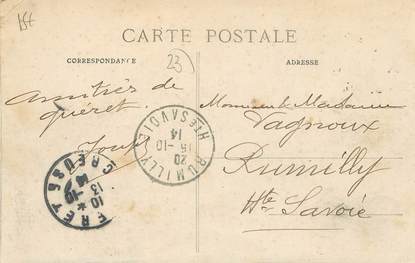 15€
CARTE POSTALE
CORRESPONDANCE
23
ADRESSE
Amitiés de
guéret.
Monsieur & Madame
Vagnoux
Rumilly
Hte Savoie
RUMILLY
HTE SAVOIE
20
15-10
14
GUERET
CREUSE
10
13-10
14